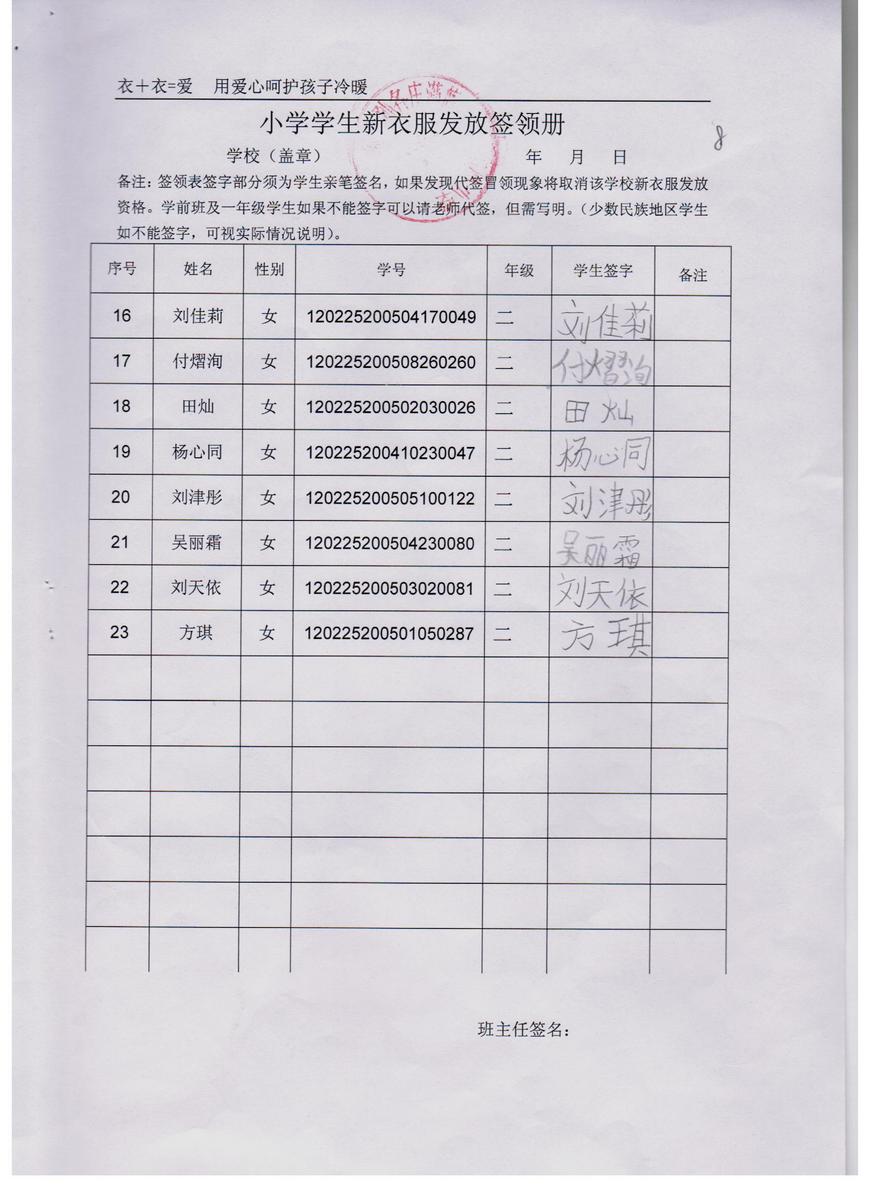 衣＋衣=爱 用爱心呵护孩子冷暖
小学学生新衣服发放签领册
8
学校（盖章） 年 月 日
备注：签领表签字部分须为学生亲笔签名，如果发现代签冒领现象将取消该学校新衣服发放
资格。学前班及一年级学生如果不能签字可以请老师代签，但需写明。（少数民族地区学生
如不能签字，可视实际情况说明）。
序号 姓名 性别 学号 年级 学生签字 备注
16 刘佳莉 女 120225200504170049 二 刘佳莉
17 付熠洵 女 120225200508260260 二 付熠洵
18 田灿 女 120225200502030026 二 田灿
19 杨心同 女 120225200410230047 二 杨心同
20 刘津彤 女 120225200505100122 二 刘津彤
21 吴丽霜 女 120225200504230080 二 吴丽霜
22 刘天依 女 120225200503020081 二 刘天依
23 方琪 女 120225200501050287 二 方琪
班主任签名：